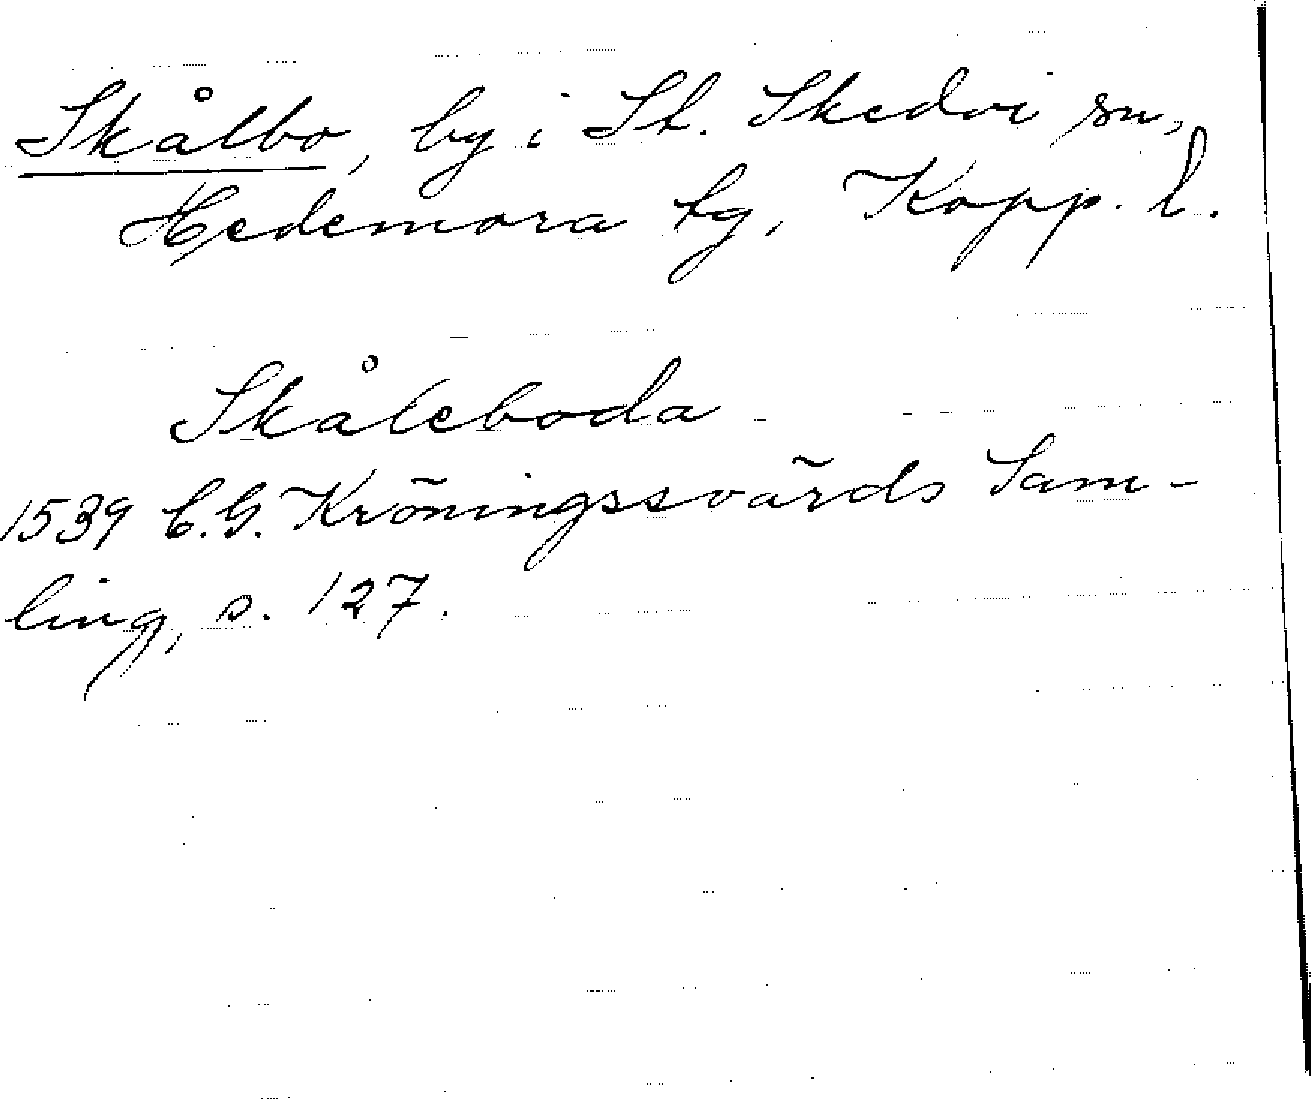 Skålbo, by i St. Skedvi sn,
Hedemora tg, Kopp. l.
Skåleboda
1539 C.G. Kröningssvärds Sam-
ling, s. 127.